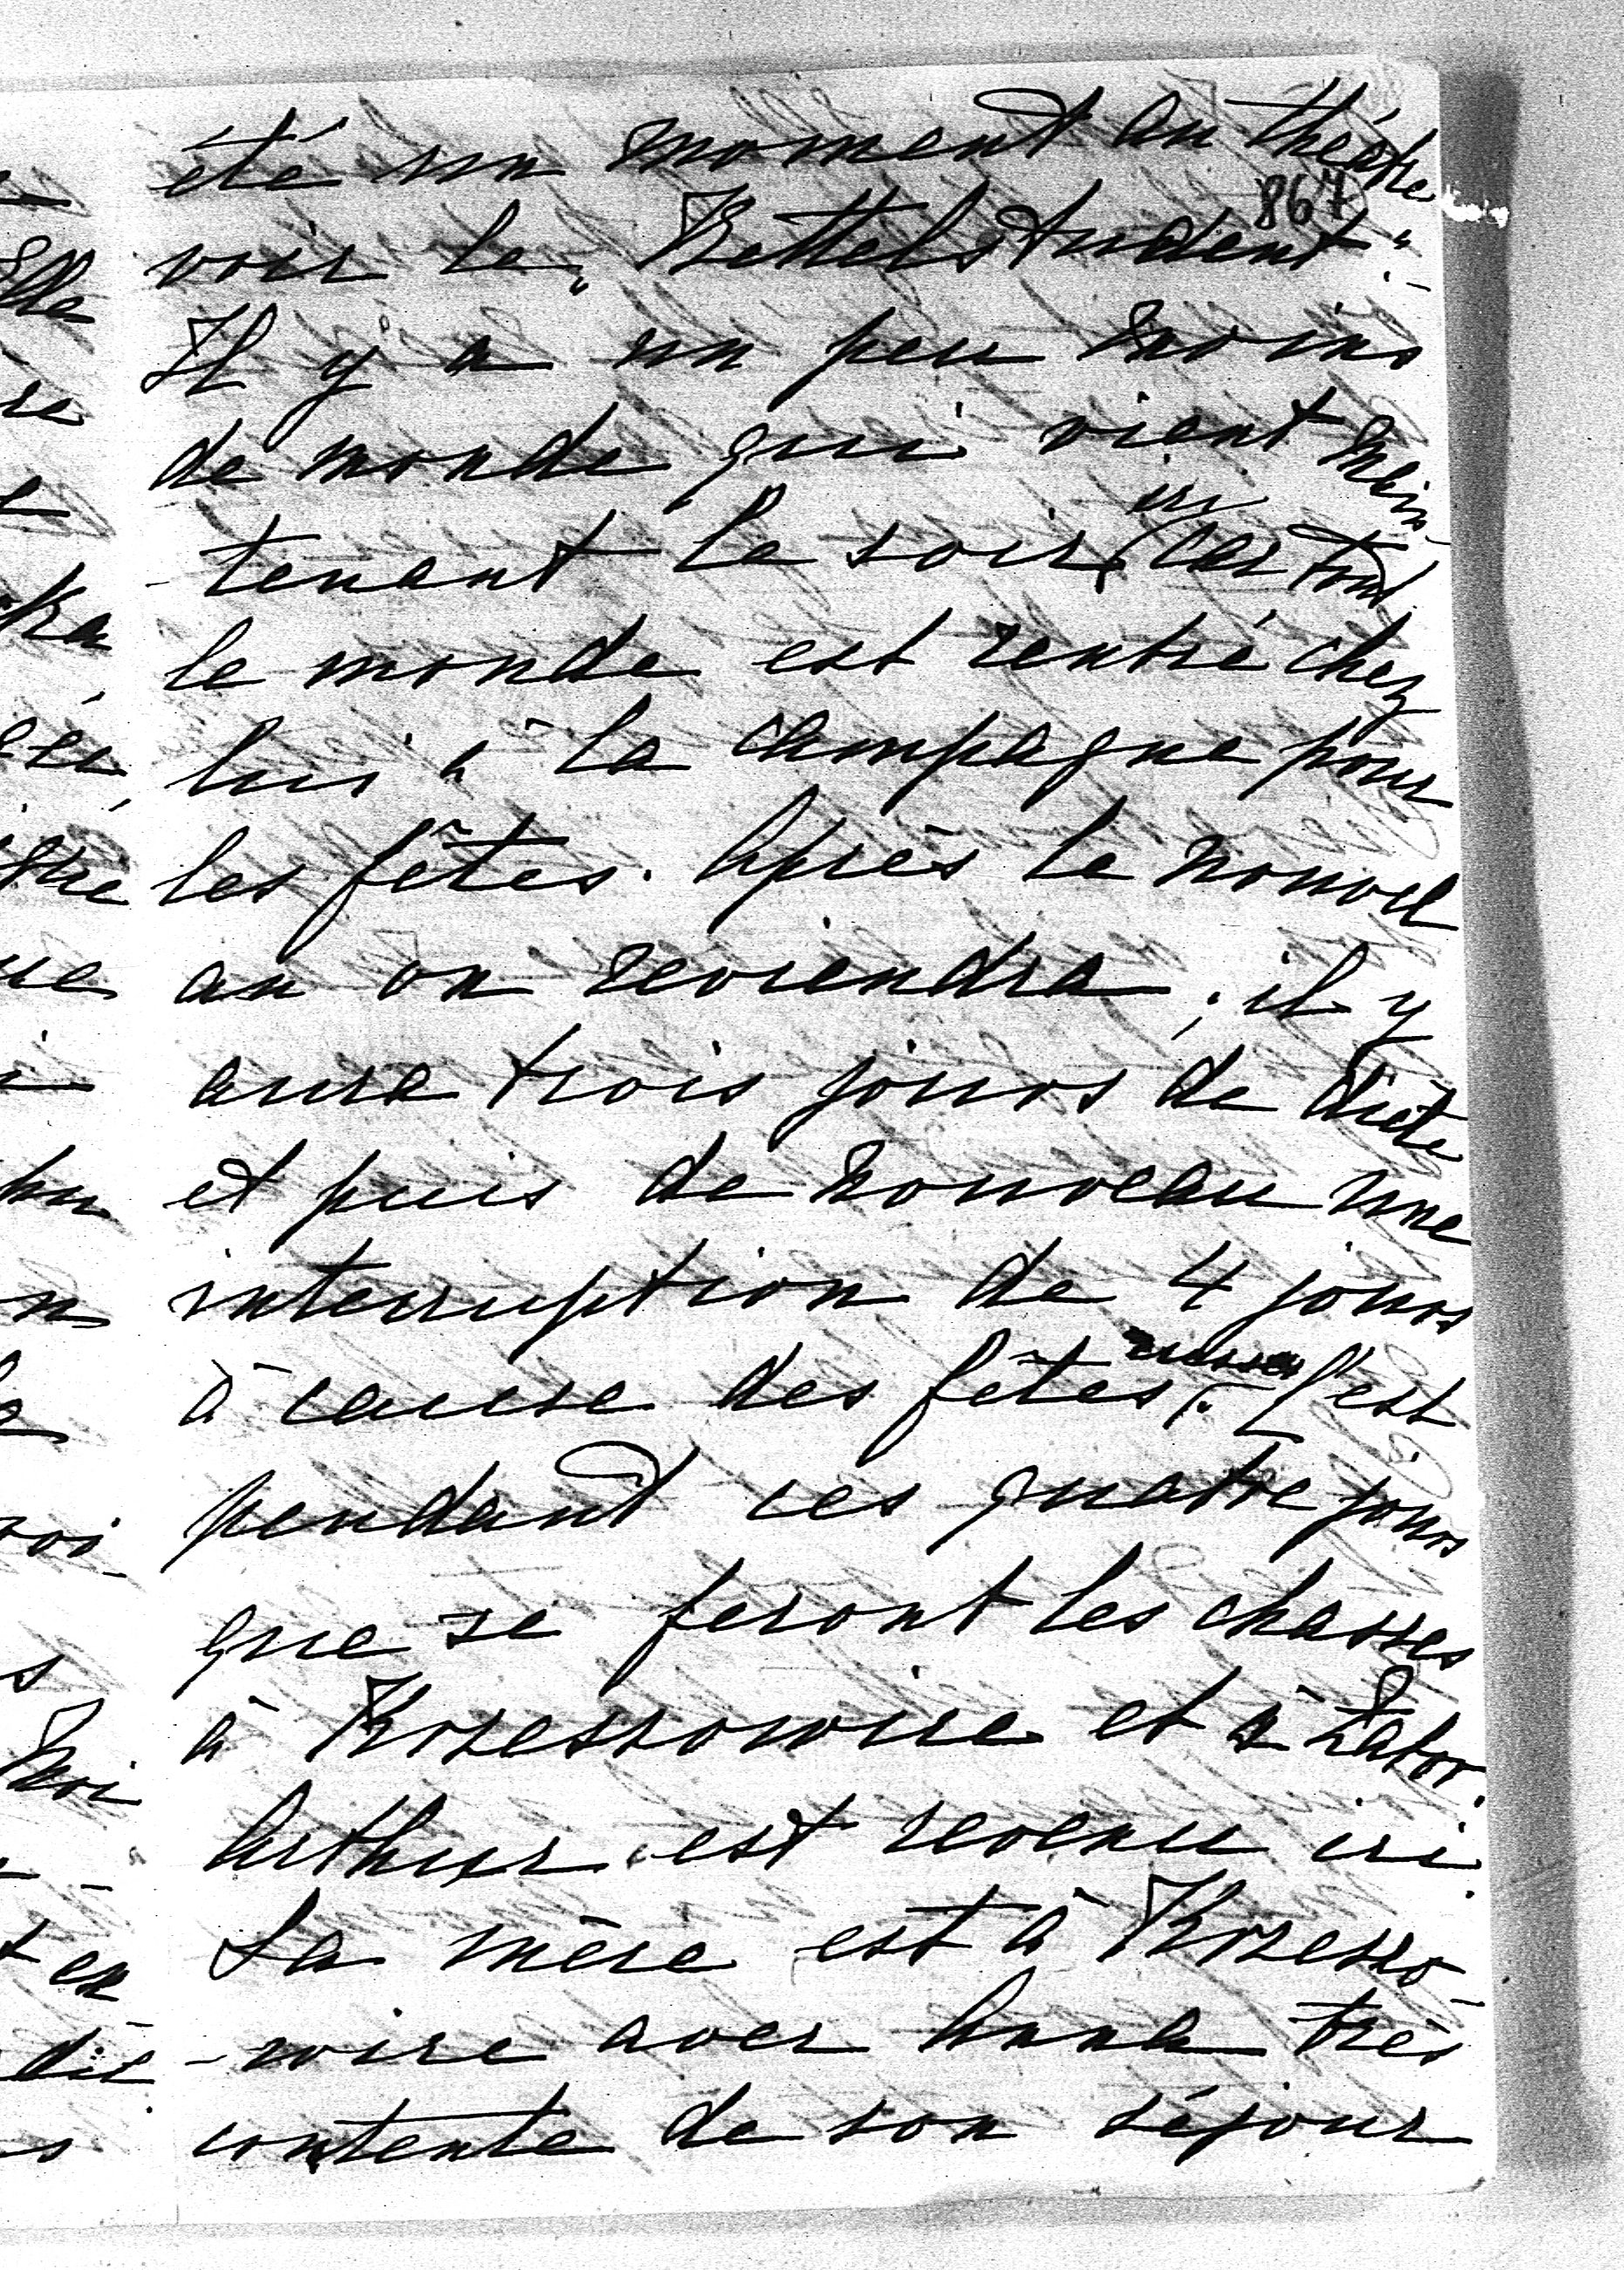 été un moment au théâtre
867
voir le „Bettelstudent“.
Il y a un peu moins
de monde qui vient main-
-tenant le soir ici car tout
le monde est rentré chez
lui à la campagne pour
les fêtes. Après le nouvel
an on reviendra; il y
aura trois jours de diète
et puis de nouveau une
interruption de 4 jours
à cause des fêtes russes. C'est
pendant ces quatre jours
que se feront les chasses
à Krzeszowice et à Zator.
Arthur est revenu ici.
Sa mère est à Krzeszo-
-wice avec Anna très
contente de son séjour